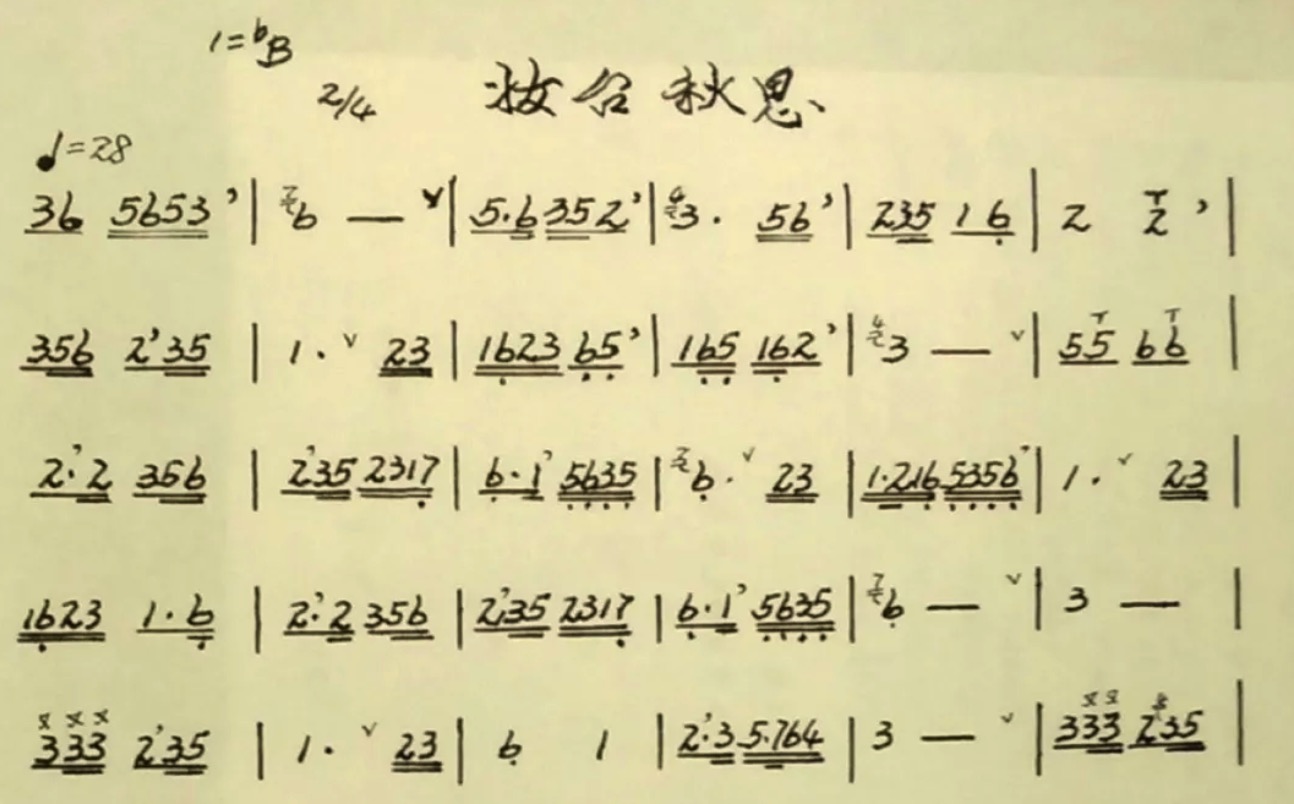 1=♭B
2/4 妆台秋思
♩=28
36 5653 ’ | 7 6 — ∨ | 5·6 352 ’ | 4 3· 56 ’ | 235 16 | 2 T2 ’ |
356 2’35 | 1· ∨ 23 | 1623 65 ’ | 165 162 ’ | 4 3 — ∨ | 5T5 6T6 |
2·’2 356 | 2’35 2317 | 6·1’ 5635 | 7 6· ∨ 23 | 1·216 5356’ | 1· ∨ 23 |
1623 1·6 | 2·’2 356 | 2’35 2317 | 6·1’ 5635 | 7 6 — ∨ | 3 — |
333 2’35 | 1· ∨ 23 | 6 1 | 2·’3 5·764 | 3 — ∨ | 333 235 |